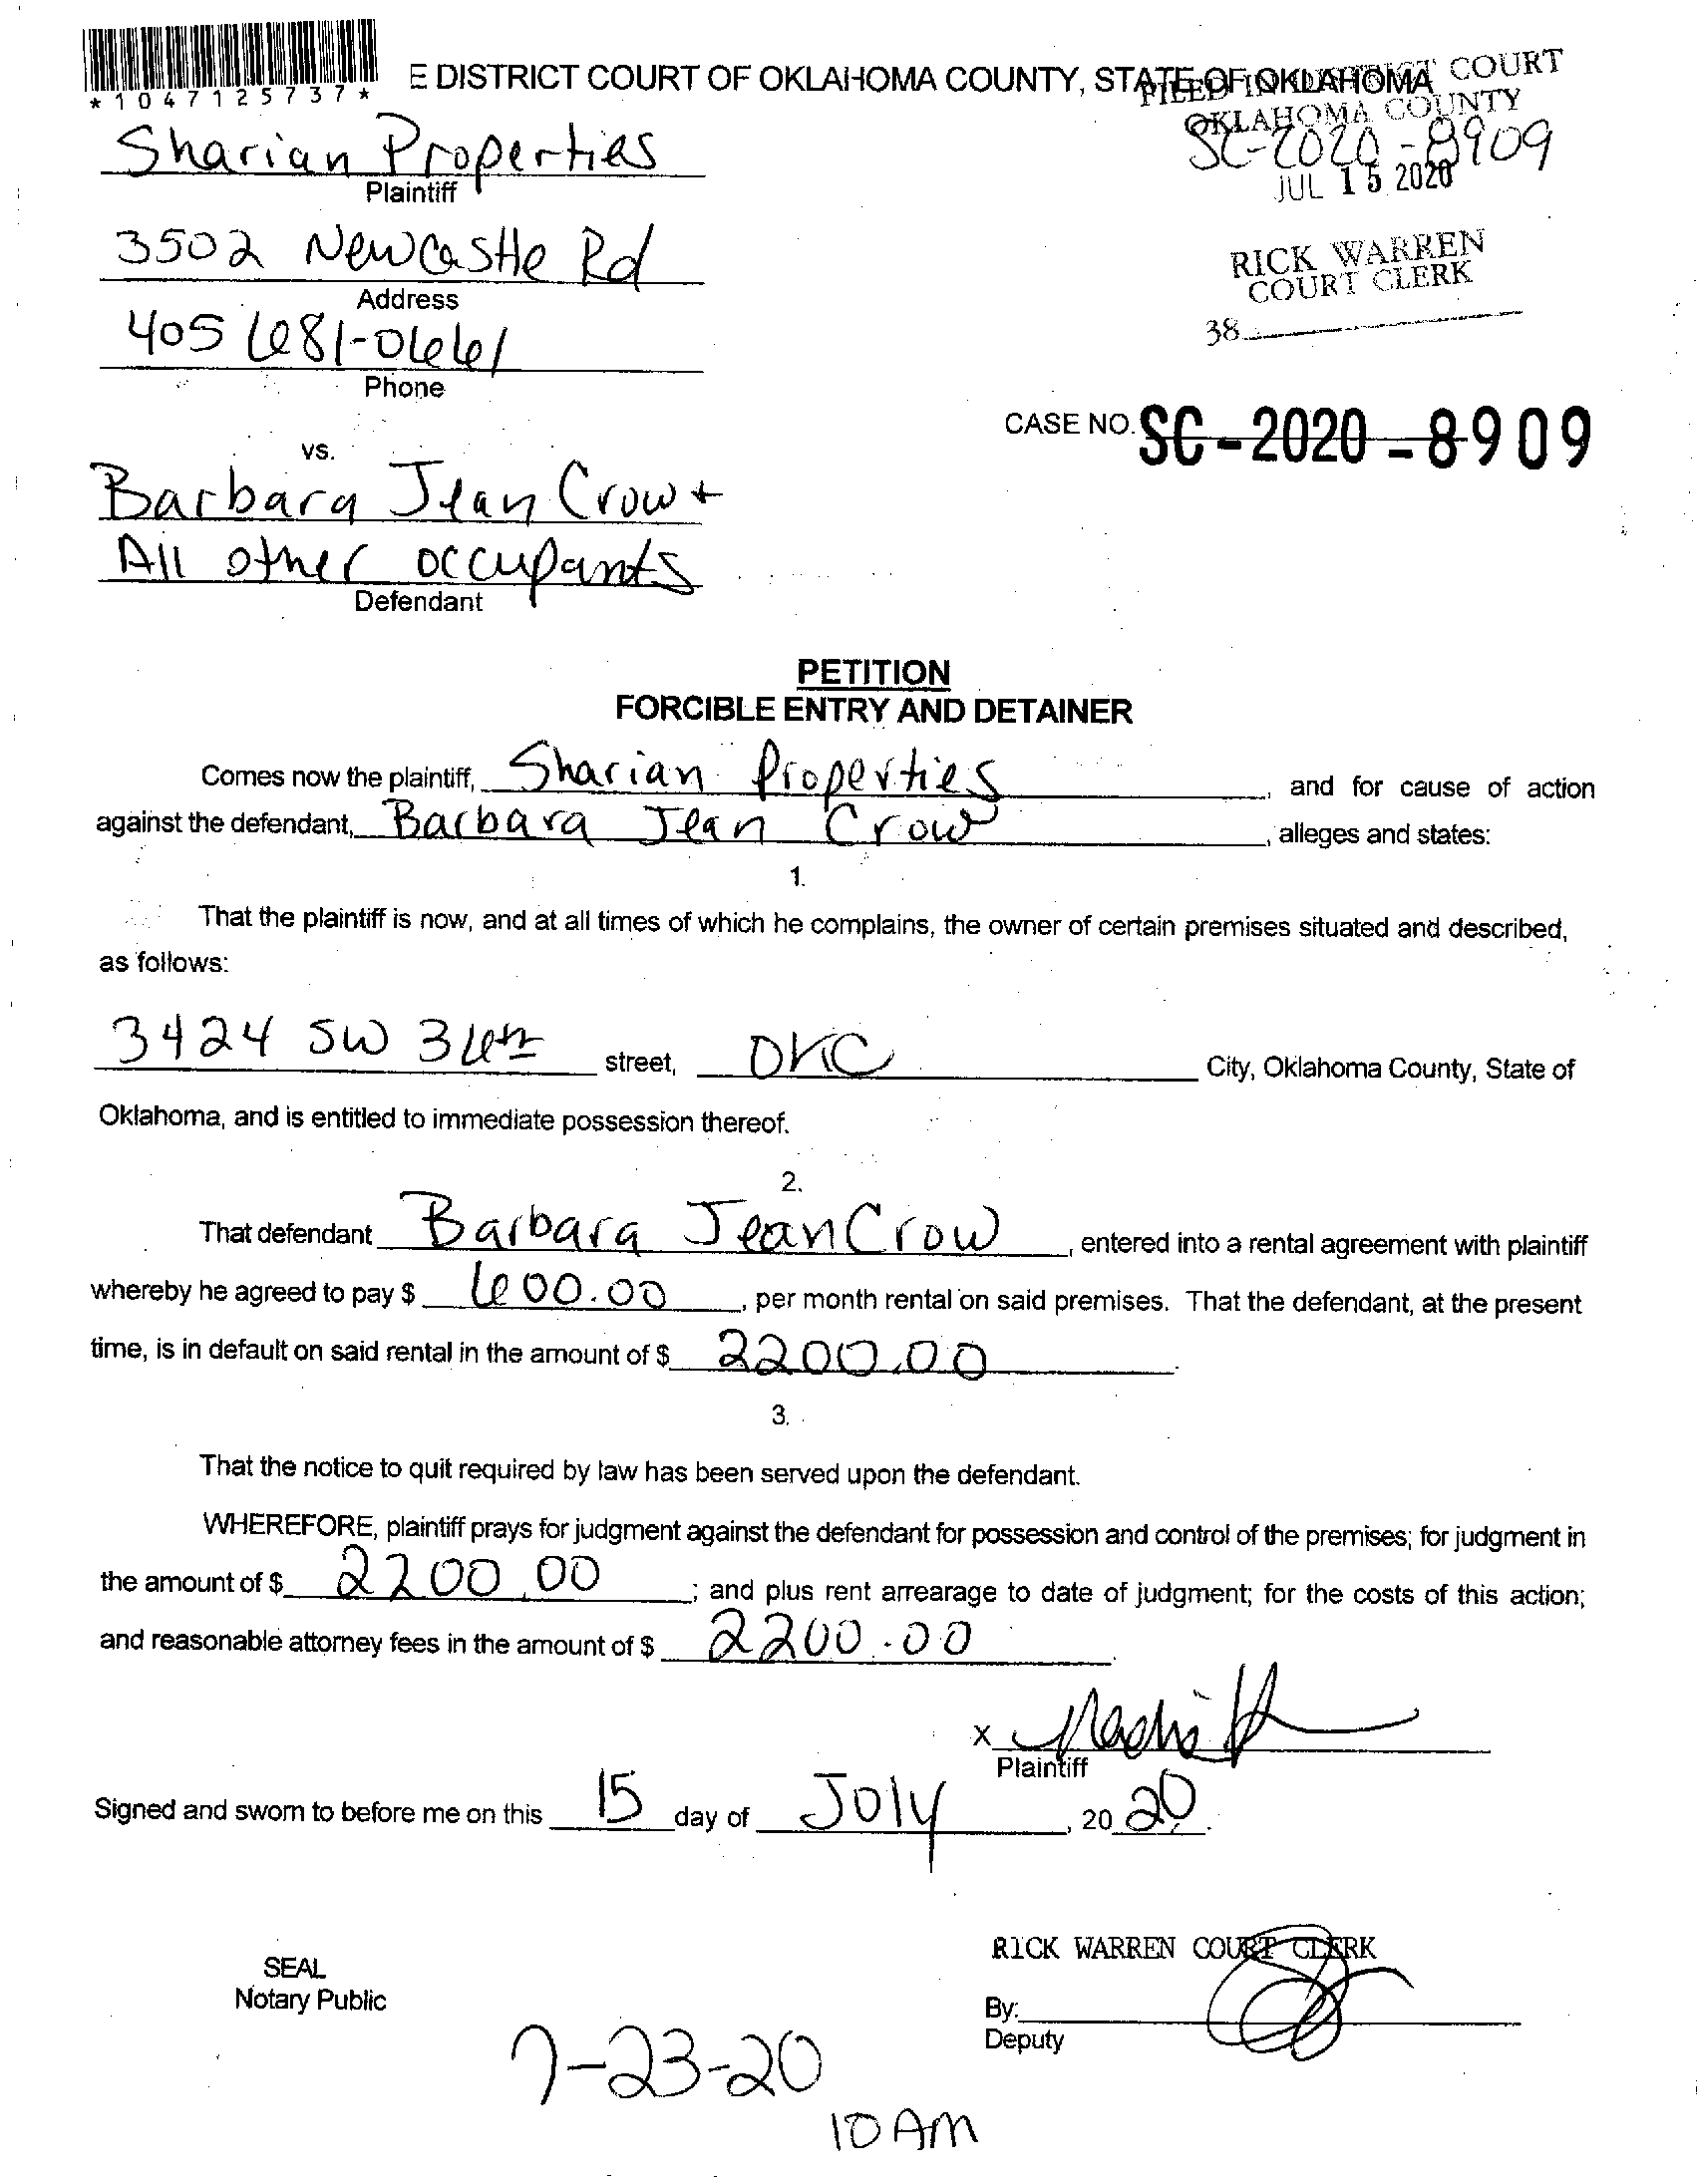 *1047125737*
E DISTRICT COURT OF OKLAHOMA COUNTY, STATE OF OKLAHOMA
FILED IN DISTRICT COURT
OKLAHOMA COUNTY
Sharian Properties
SC-2020-8909
Plaintiff
JUL 15 2020
3502 Newcastle Rd
RICK WARREN
COURT CLERK
Address
38
405 681-0661
Phone
CASE NO. SC-2020-8909
vs.
Barbara Jean Crow +
All other occupants
Defendant
PETITION
FORCIBLE ENTRY AND DETAINER
Comes now the plaintiff, Sharian Properties, and for cause of action
against the defendant, Barbara Jean Crow, alleges and states:
1.
That the plaintiff is now, and at all times of which he complains, the owner of certain premises situated and described,
as follows:
3424 SW 36th street, OKC City, Oklahoma County, State of
Oklahoma, and is entitled to immediate possession thereof.
2.
That defendant Barbara Jean Crow, entered into a rental agreement with plaintiff
whereby he agreed to pay $ 600.00, per month rental on said premises. That the defendant, at the present
time, is in default on said rental in the amount of $ 2200.00.
3.
That the notice to quit required by law has been served upon the defendant.
WHEREFORE, plaintiff prays for judgment against the defendant for possession and control of the premises; for judgment in
the amount of $ 2200.00; and plus rent arrearage to date of judgment; for the costs of this action;
and reasonable attorney fees in the amount of $ 2200.00.
X
Plaintiff
Signed and sworn to before me on this 15 day of July, 20 20.
RICK WARREN COURT CLERK
SEAL
Notary Public
By:
Deputy
7-23-20
10 AM